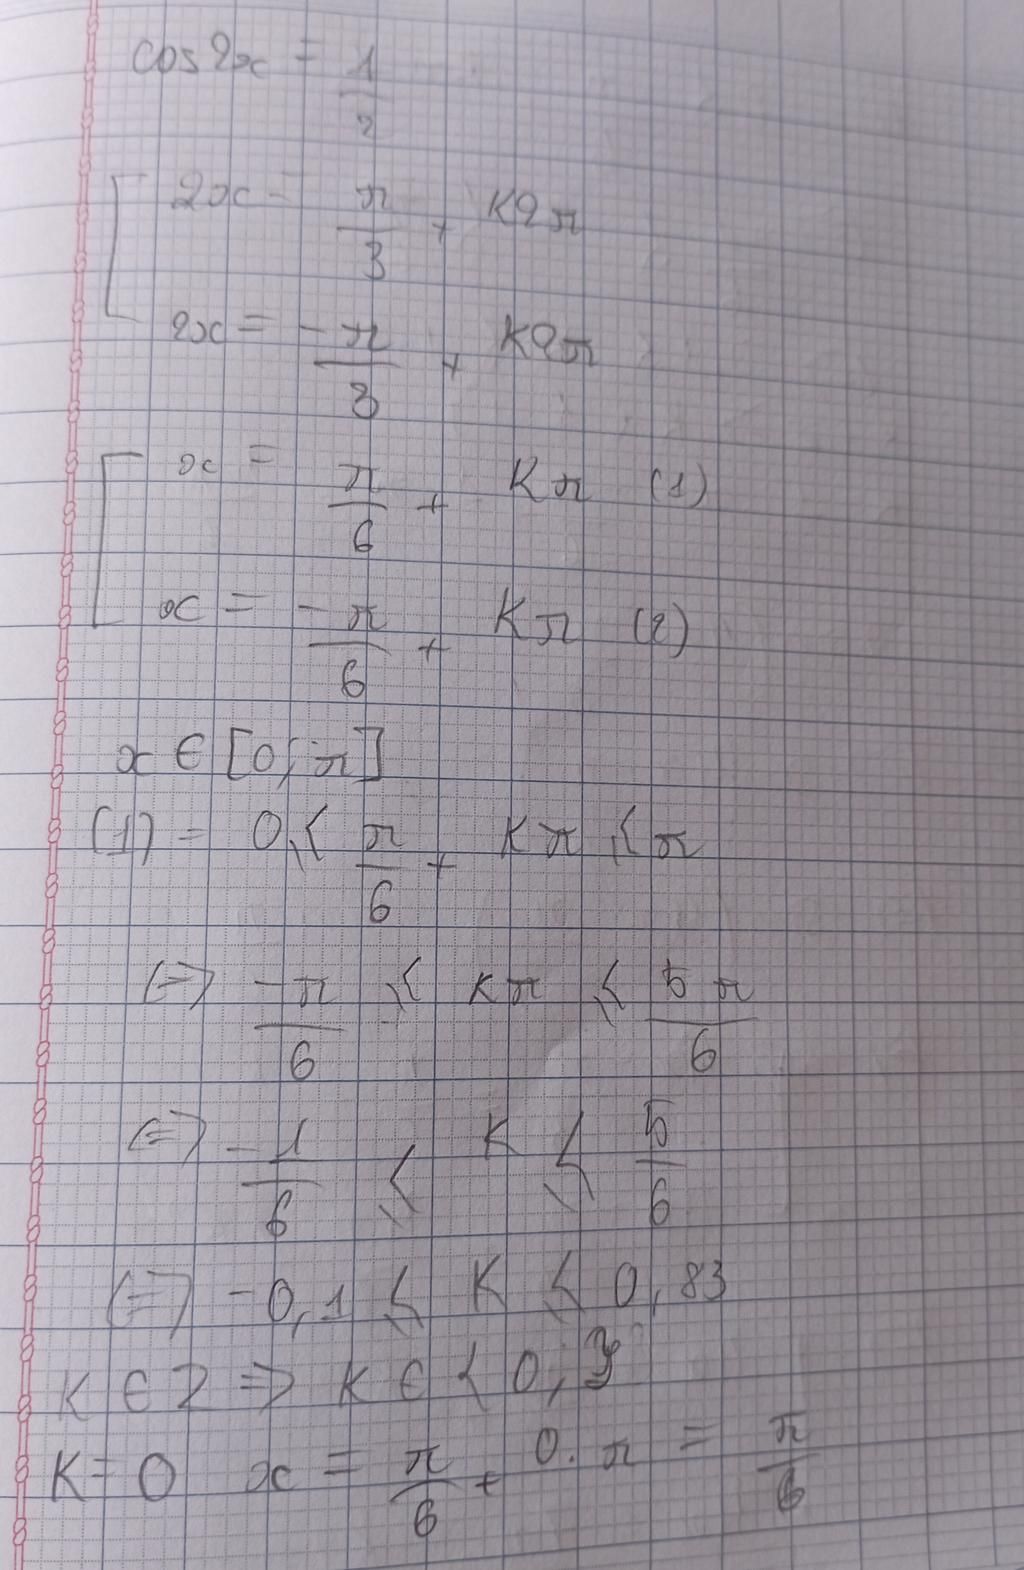 cos 2x = 1/2
2x = π/3 + k2π
2x = -π/3 + k2π
x = π/6 + kπ (1)
x = -π/6 + kπ (2)
x ∈ [0; π]
(1) = 0 ≤ π/6 + kπ ≤ π
(=) -π/6 ≤ kπ ≤ 5π/6
(=) -1/6 ≤ k ≤ 5/6
(=) -0,1 ≤ k ≤ 0,83
k ∈ Z => k ∈ {0, }
k = 0 x = π/6 + 0.π = π/6